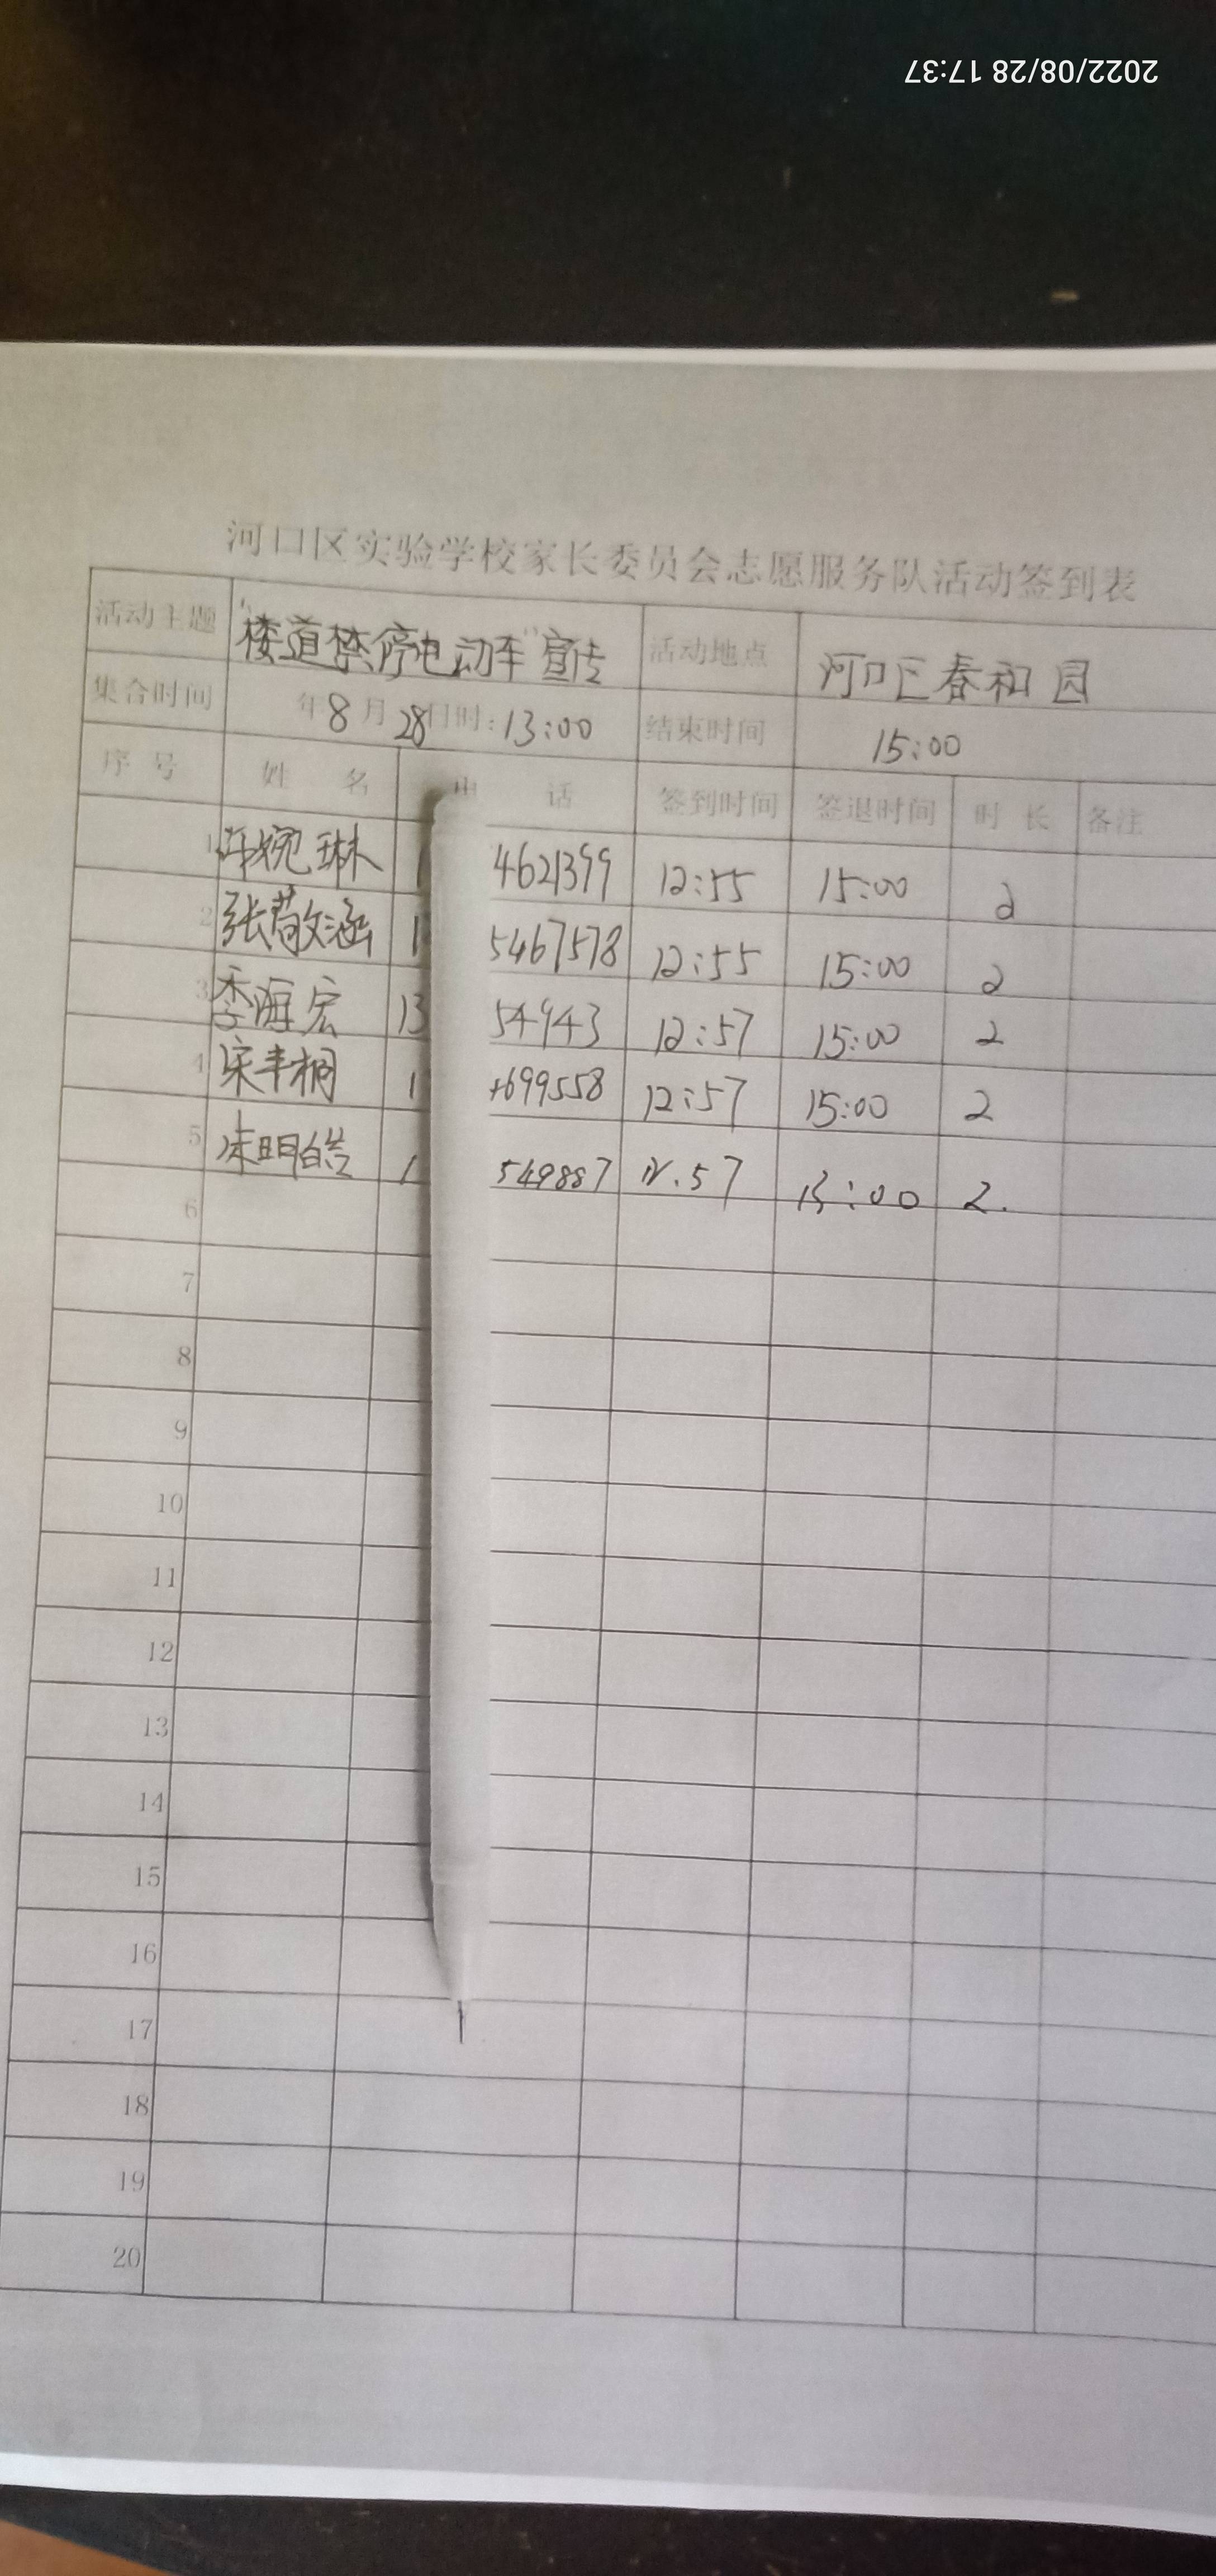 2022/08/28 17:37
河口区实验学校家长委员会志愿服务队活动签到表
活动主题 "楼道禁停电动车"宣传 活动地点 河口区春和园
集合时间 年8月28日时:13:00 结束时间 15:00
序 号 姓 名 电 话 签到时间 签退时间 时 长 备注
1 许婉琳 1 4621399 12:55 15:00 2
2 张敬涵 1 5467578 12:55 15:00 2
3 李海宏 13 54943 12:57 15:00 2
4 宋丰桐 1 699558 12:57 15:00 2
5 明皓 1 549887 12.57 15:00 2.
6
7
8
9
10
11
12
13
14
15
16
17
18
19
20